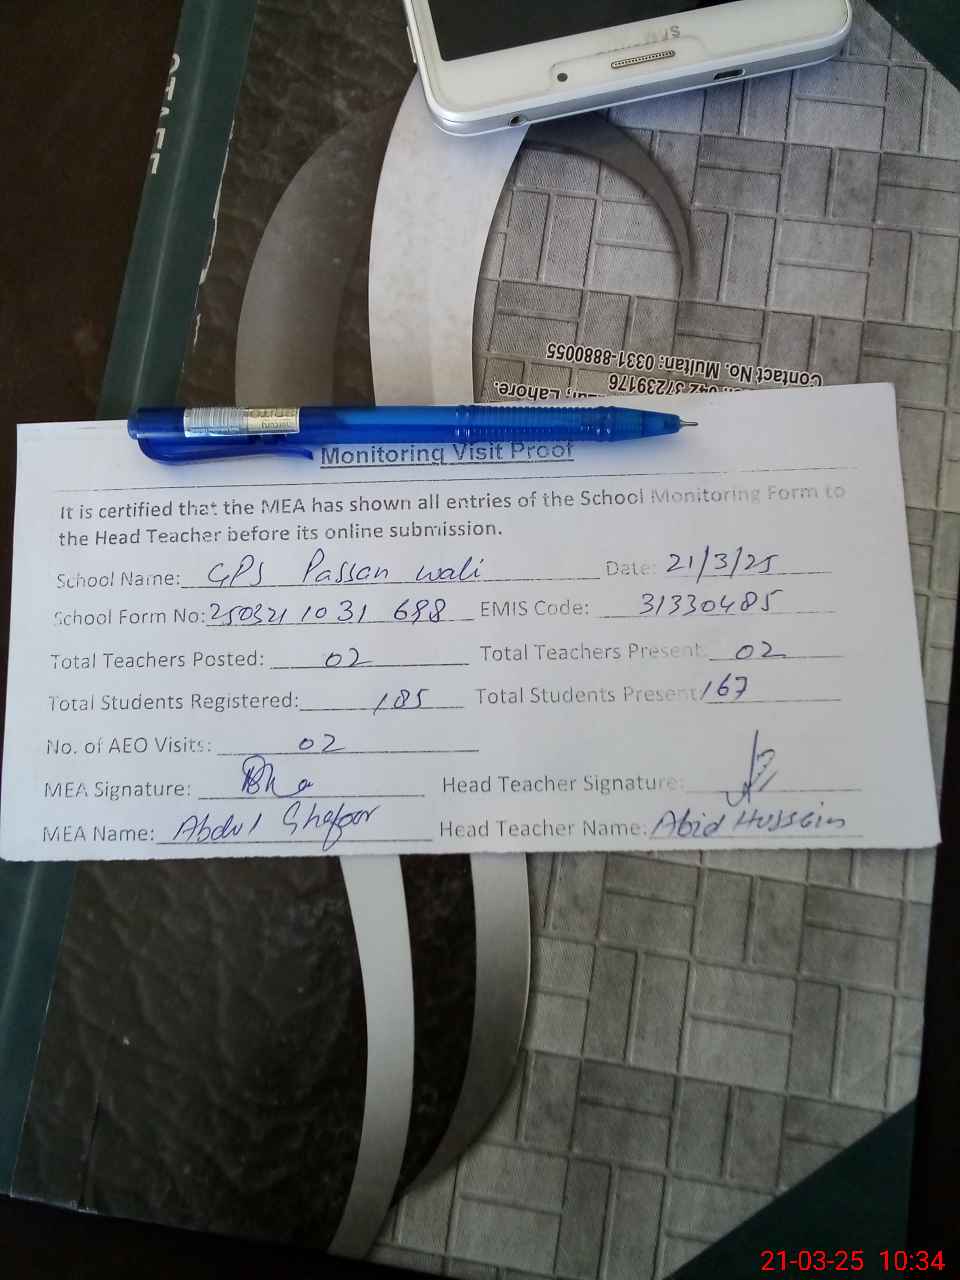 SAMSUNG
Contact No. Multan: 0331-8880055
042 37239176
Lahore.
Monitoring Visit Proof
It is certified that the MEA has shown all entries of the School Monitoring Form to
the Head Teacher before its online submission.
School Name: GPS Passan wali Date: 21/3/25
School Form No: 250321 1031 698 EMIS Code: 31330485
Total Teachers Posted: 02 Total Teachers Present: 02
Total Students Registered: 185 Total Students Present: 167
No. of AEO Visits: 02
MEA Signature: Head Teacher Signature:
MEA Name: Abdul Ghafoor Head Teacher Name: Abid Hussain
21-03-25 10:34